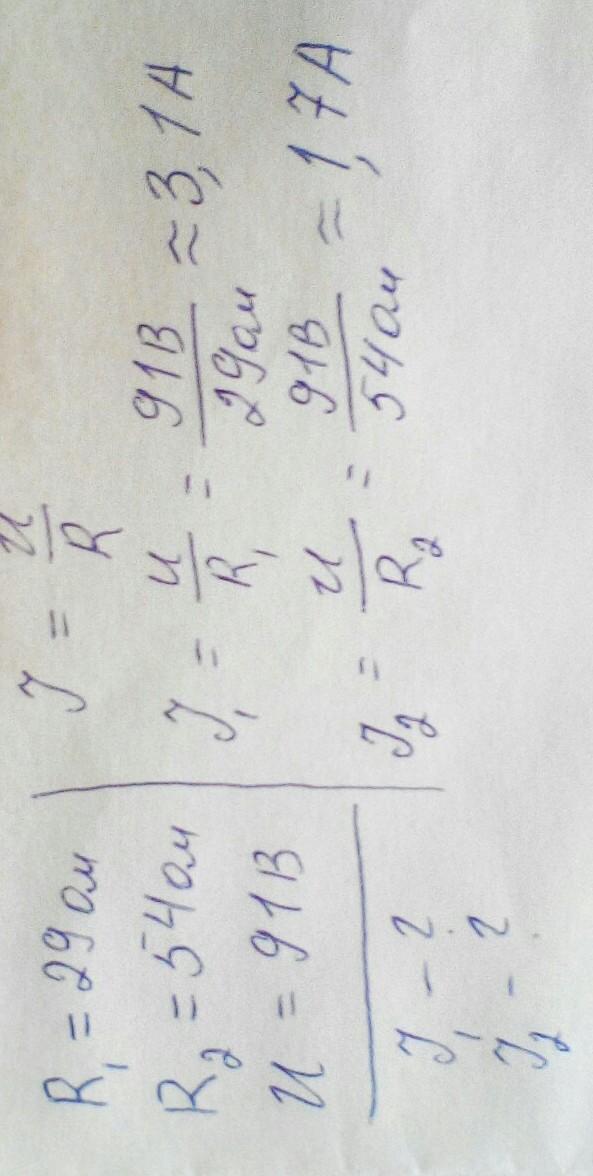 R₁ = 29 ом
R₂ = 54 ом
U = 91 В
I₁ - ?
I₂ - ?
I = U/R
I₁ = U/R₁ = 91В/29ом ≈ 3,1 А
I₂ = U/R₂ = 91В/54ом ≈ 1,7 А